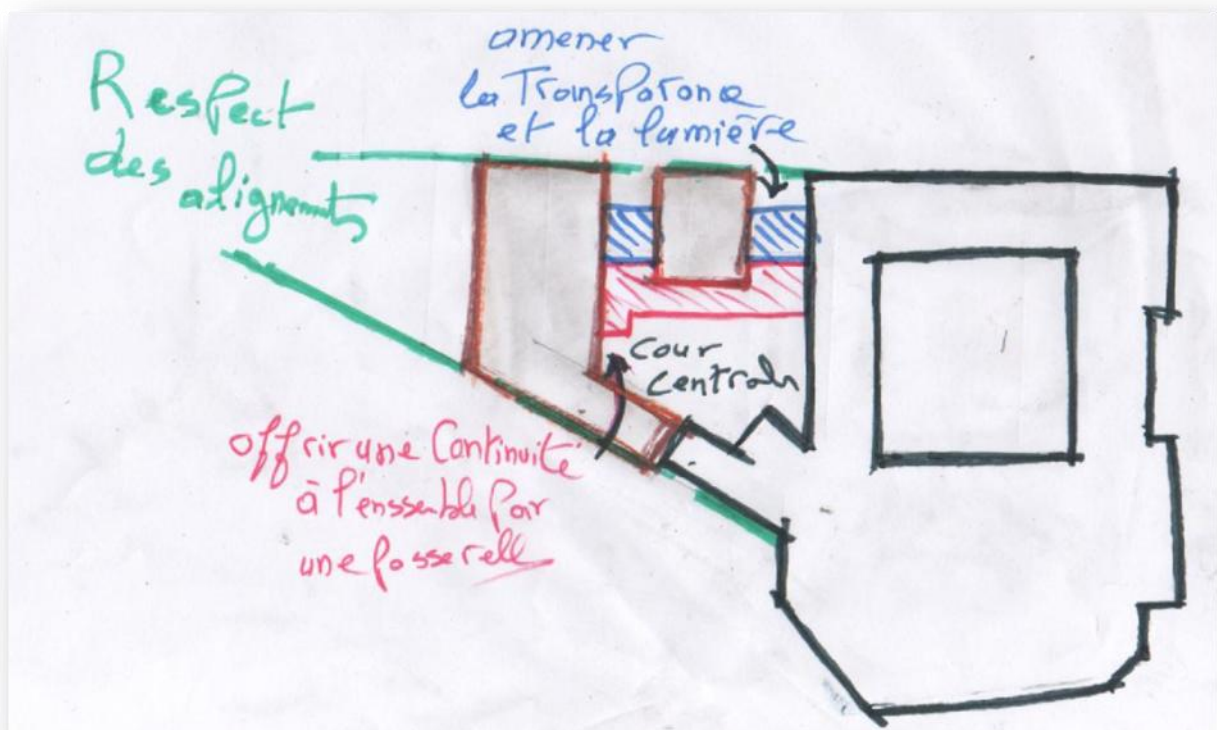 Respect
des alignements
amener
la Transparence
et la lumière
Cour
Centrale
offrir une Continuité
à l'enssemble par
une passerelle